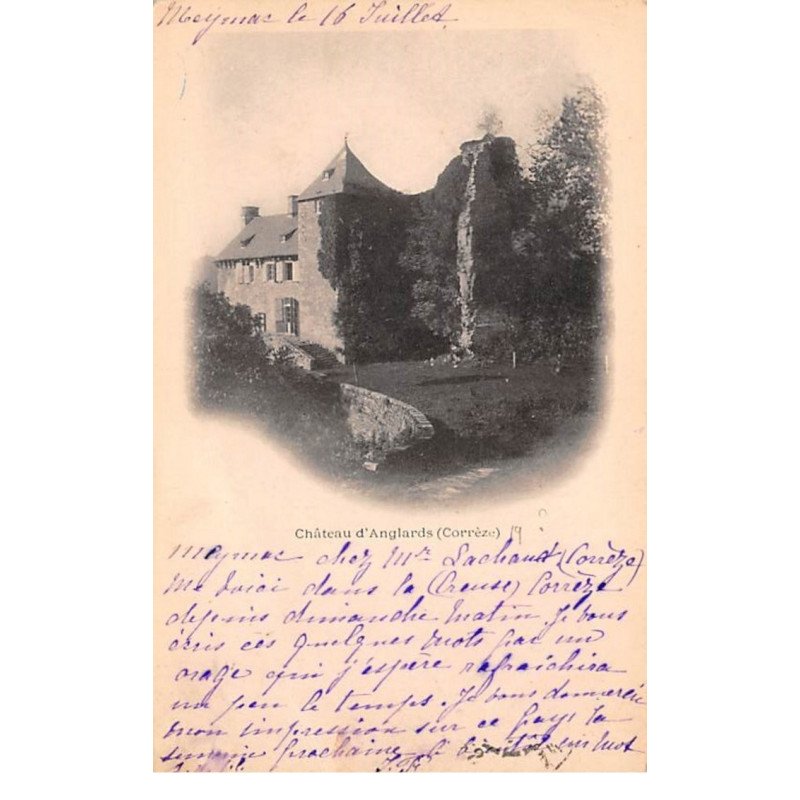 Meymac le 16 Juillet
Château d'Anglards (Corrèze) 19
Meymac chez Mr Lachaud (Corrèze)
Me voici dans la (Creuse) Corrèze
depuis dimanche matin. Je vous
écris ces quelques mots par un
orage qui j'espère rafraichira
un peu le temps. Je vous donnerai
mon impression sur ce pays la
semaine prochaine